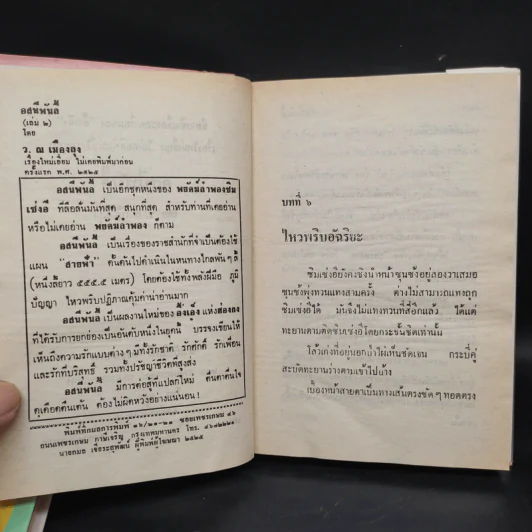 อสนีพันลี้
(เล่ม ๒)
โดย
ว. ณ เมืองลุง
เรื่องใหม่เอี่ยม ไม่เคยพิมพ์มาก่อน
ครั้งแรก พ.ศ. ๒๕๒๕
อสนีพันลี้ เป็นอีกชุดหนึ่งของ พยัคฆ์ลำพองซิม
เซ่งอี้ ที่ลือลั่นมันที่สุด สนุกที่สุด สำหรับท่านที่เคยอ่าน
หรือไม่เคยอ่าน พยัคฆ์ลำพอง ก็ตาม
อสนีพันลี้ เป็นเรื่องของราชสำนักที่จำเป็นต้องใช้
แผน "สายฟ้า" ดั้นด้นไปดำเนินในหนทางไกลพัน ๆ ลี้
(หนึ่งลี้ยาว ๕๕๕.๕ เมตร) โดยต้องใช้ทั้งพลังฝีมือ ภูมิ
ปัญญา ไหวพริบปฏิภาณคุ้มค่าน่าอ่านมาก
อสนีพันลี้ เป็นผลงานใหม่ของ อั้งเอ็ง แห่งฮ่องกง
ที่ได้รับการยกย่องเป็นอันดับหนึ่งในยุคนี้ บรรจงเขียนให้
เห็นถึงความรักแบบต่าง ๆ มีทั้งรักชาติ รักศักดิ์ รักเพื่อน
และรักที่บริสุทธิ์ รวมทั้งปรัชญาชีวิตที่สูงส่ง
อสนีพันลี้ มีการต่อสู้ที่แปลกใหม่ ตื่นตาตื่นใจ
ดุเดือดตื่นเต้น ต้องไม่ผิดหวังอย่างแน่นอน !
ถนนเพชรเกษม ภาษีเจริญ กรุงเทพมหานคร โทร.
บทที่ ๖
ไหวพริบอัจฉริยะ
ซิมเซ่งอี้ยังคงชิงนำหน้าซุนซ้งอยู่สองวาเสมอ
ซุนซ้งพุ่งทวนแทงสามครั้ง ต่างไม่สามารถแทงถูก
ซิมเซ่งอี้ได้ มันจึงไม่แทงทวนที่สี่อีกแล้ว ได้แต่
ทะยานตามติดซิมเซ่งอี้โดยกระชั้นชิดเท่านั้น
สะบัดทะยานร่างตามเข้าไปบ้าง
เบื้องหน้าสายตาเป็นทางเส้นตรงชัด ๆ ทอดตรง